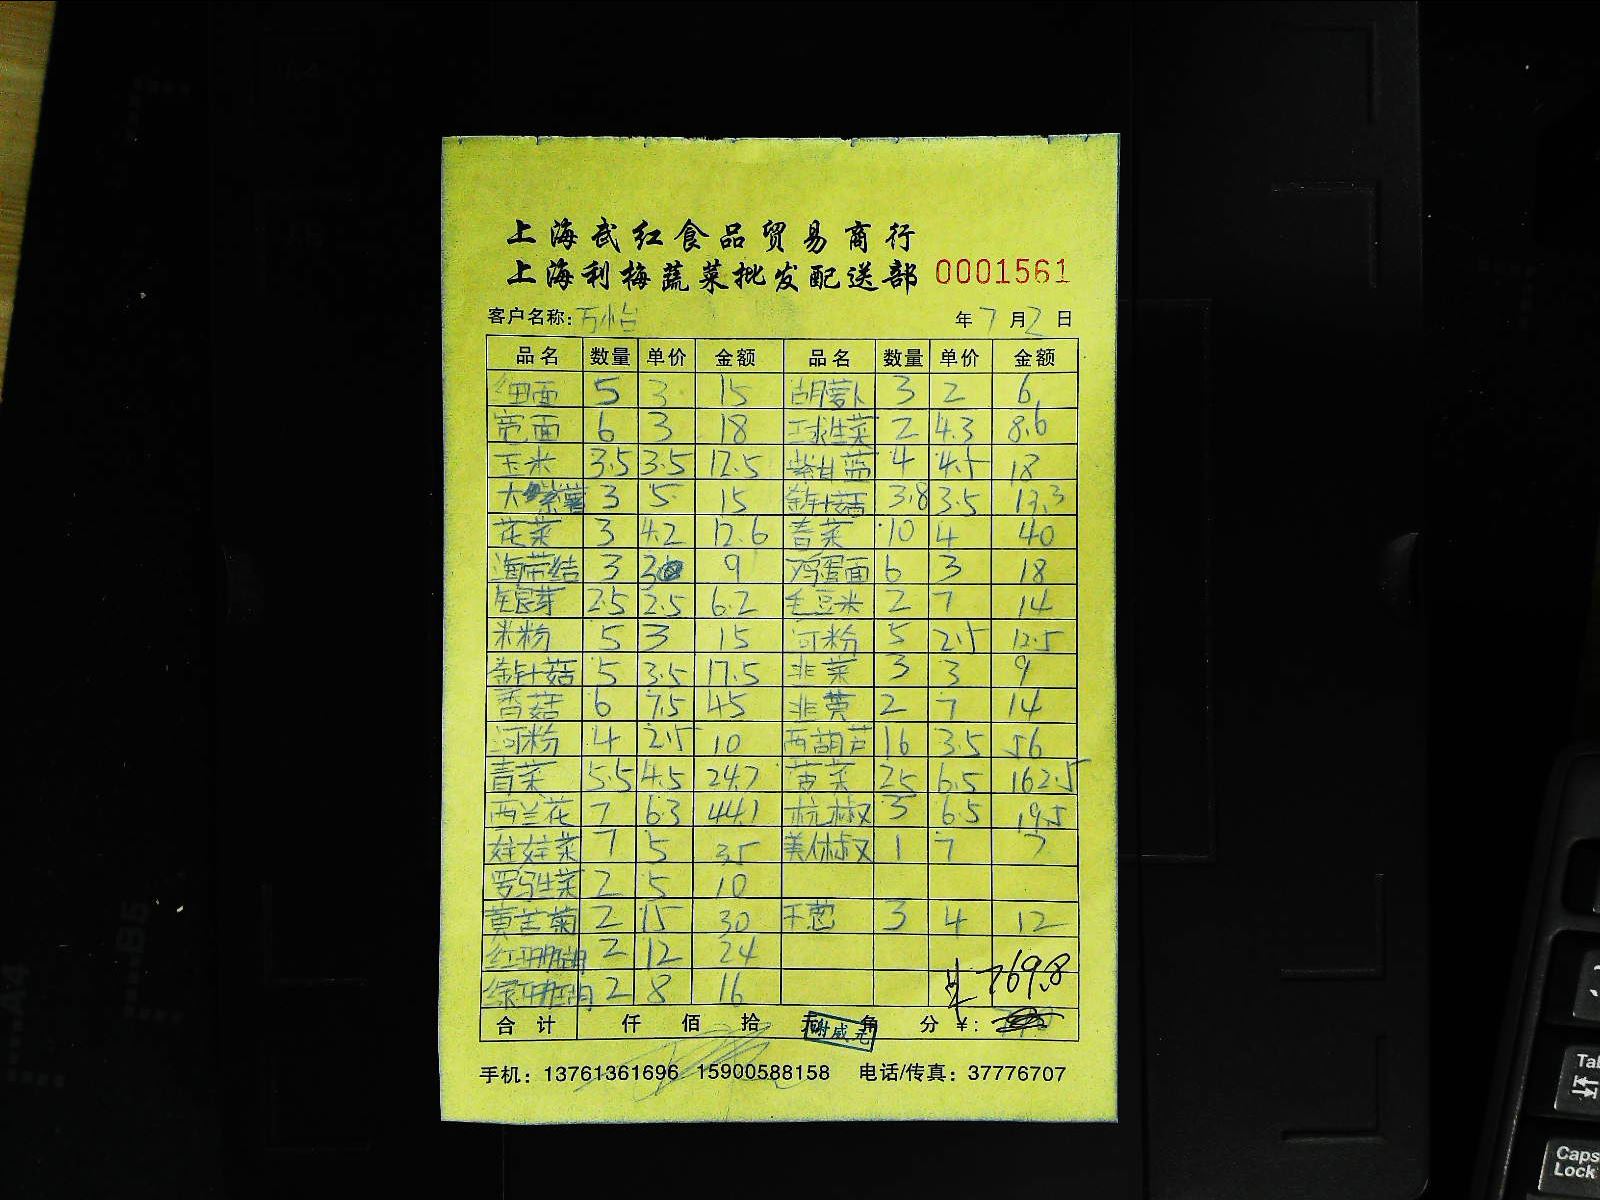 上海武红食品贸易商行
上海利梅蔬菜批发配送部 0001561
客户名称: 万怡 年 7 月 2 日
品名 数量 单价 金额 品名 数量 单价 金额
细面 5 3 15 胡萝卜 3 2 6
宽面 6 3 18 球生菜 2 4.3 8.6
玉米 3.5 3.5 12.5 紫甘蓝 4 4.5 18
大紫薯 3 5 15 金针菇 3.8 3.5 13.3
花菜 3 4.2 12.6 青菜 10 4 40
海带结 3 3 9 鸡蛋面 6 3 18
银芽 2.5 2.5 6.2 毛豆米 2 7 14
米粉 5 3 15 河粉 5 2.5 12.5
金针菇 5 3.5 17.5 韭菜 3 3 9
香菇 6 7.5 45 韭黄 2 7 14
河粉 4 2.5 10 西葫芦 16 3.5 56
青菜 5.5 4.5 24.7 菜 25 6.5 162.5
西兰花 7 6.3 44.1 杭椒 3 6.5 19.5
娃娃菜 7 5 35 美休椒 1 7 7
罗马生菜 2 5 10
黄苦菊 2 15 30 干葱 3 4 12
红珊瑚 2 12 24
绿珊瑚 2 8 16 769.8
合计 仟 佰 拾 元 角 分 ¥:
谢威元
手机: 13761361696 15900588158 电话/传真: 37776707
Tab
Caps Lock